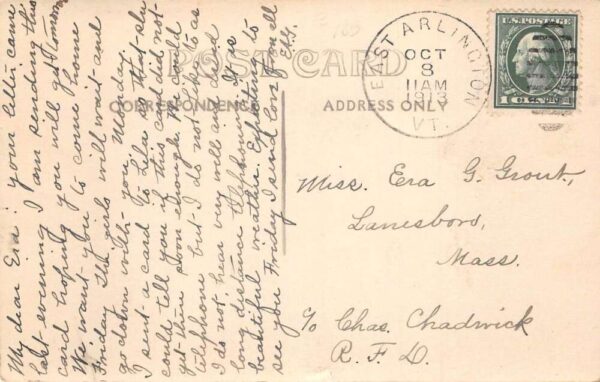 POST CARD
CORRESPONDENCE
ADDRESS ONLY
EAST ARLINGTON
OCT
8
11AM
1913
VT.
U.S. POSTAGE
1
My dear Era: your letter came
last evening I am sending this
card hoping you will get it
We want you to come home
Friday the girls will wait and
go down with you Monday.
I sent a card to Lila so that she
could tell you if this card did not
get there soon enough. We could
telephone but I do not like to as
I do not hear very well and
long distance telephone. It is
beautiful weather. Expecting to
see you Friday I send love from all
E.A.G.
Miss. Era G. Grout,
Lanesboro,
Mass.
c/o Chas. Chadwick
R.F.D.